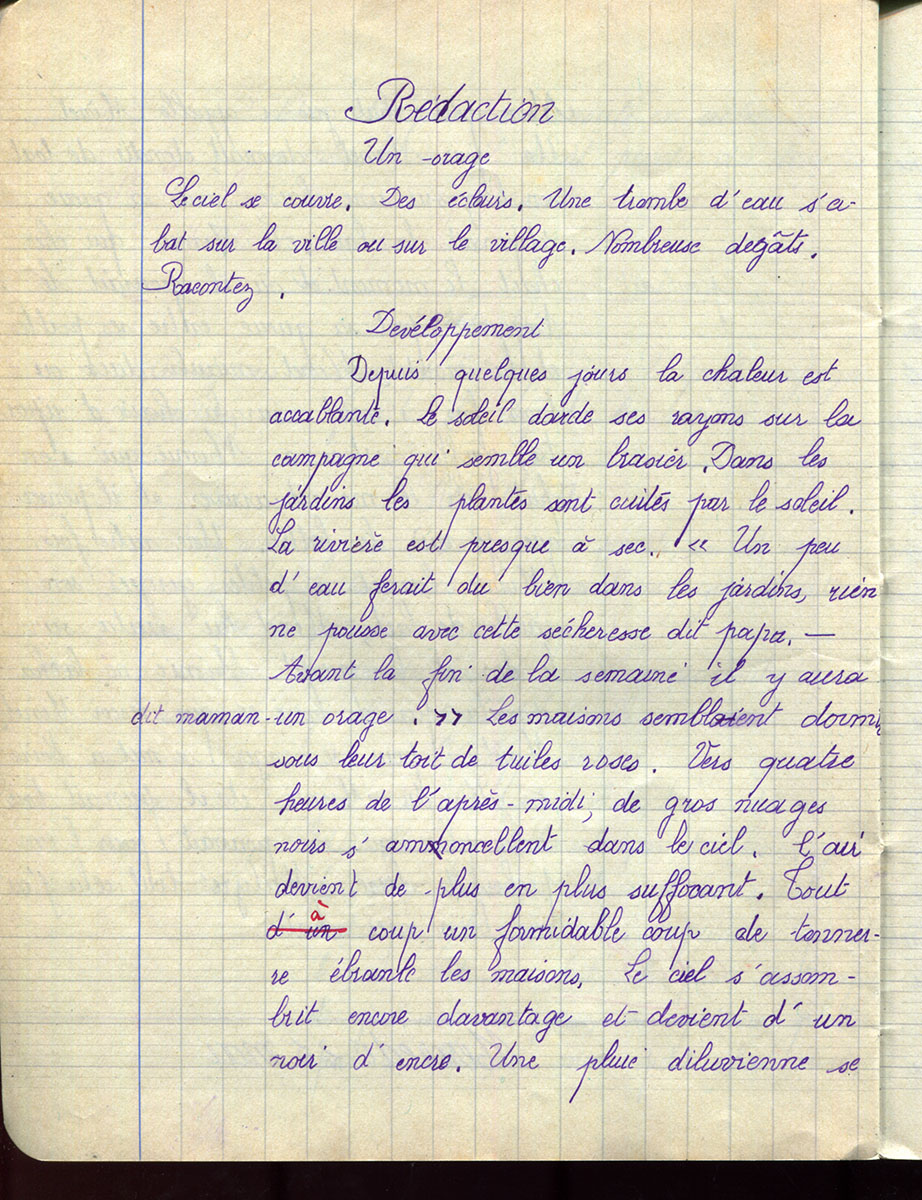 Rédaction
Un orage
Le ciel se couvre. Des éclairs. Une trombe d'eau s'a-
bat sur la ville ou sur le village. Nombreuse degâts.
Racontez.
Developpement
Depuis quelques jours la chaleur est
accablante. Le soleil darde ses rayons sur la
campagne qui semble un brasier. Dans les
jardins les plantes sont cuites par le soleil.
La rivière est presque à sec. « Un peu
d'eau ferait du bien dans les jardins, rien
ne pousse avec cette sécheresse dit papa. —
Avant la fin de la semaine il y aura
dit maman - un orage. » Les maisons semblent dormir
sous leur toit de tuiles roses. Vers quatre
heures de l'après-midi, de gros nuages
noirs s'amoncellent dans le ciel. l'air
devient de plus en plus suffocant. Tout
d'un à coup un formidable coup de tonner-
re ébranle les maisons. Le ciel s'assom-
brit encore davantage et devient d'un
noir d'encre. Une pluie diluvienne se